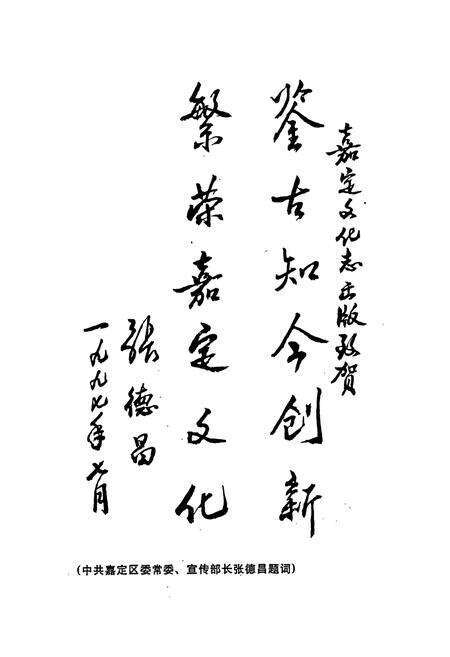 嘉定文化志出版致贺
鉴古知今创新
繁荣嘉定文化
张德昌
一九九七年七月
（中共嘉定区委常委、宣传部长张德昌题词）